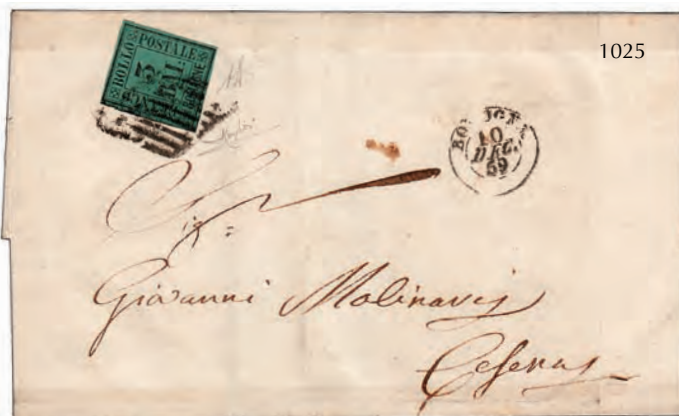 1025
BOLLO
POSTALE
3
BOLOGNA
10
DEC.
59
Sig:
Giovanni Molinari
Cesena